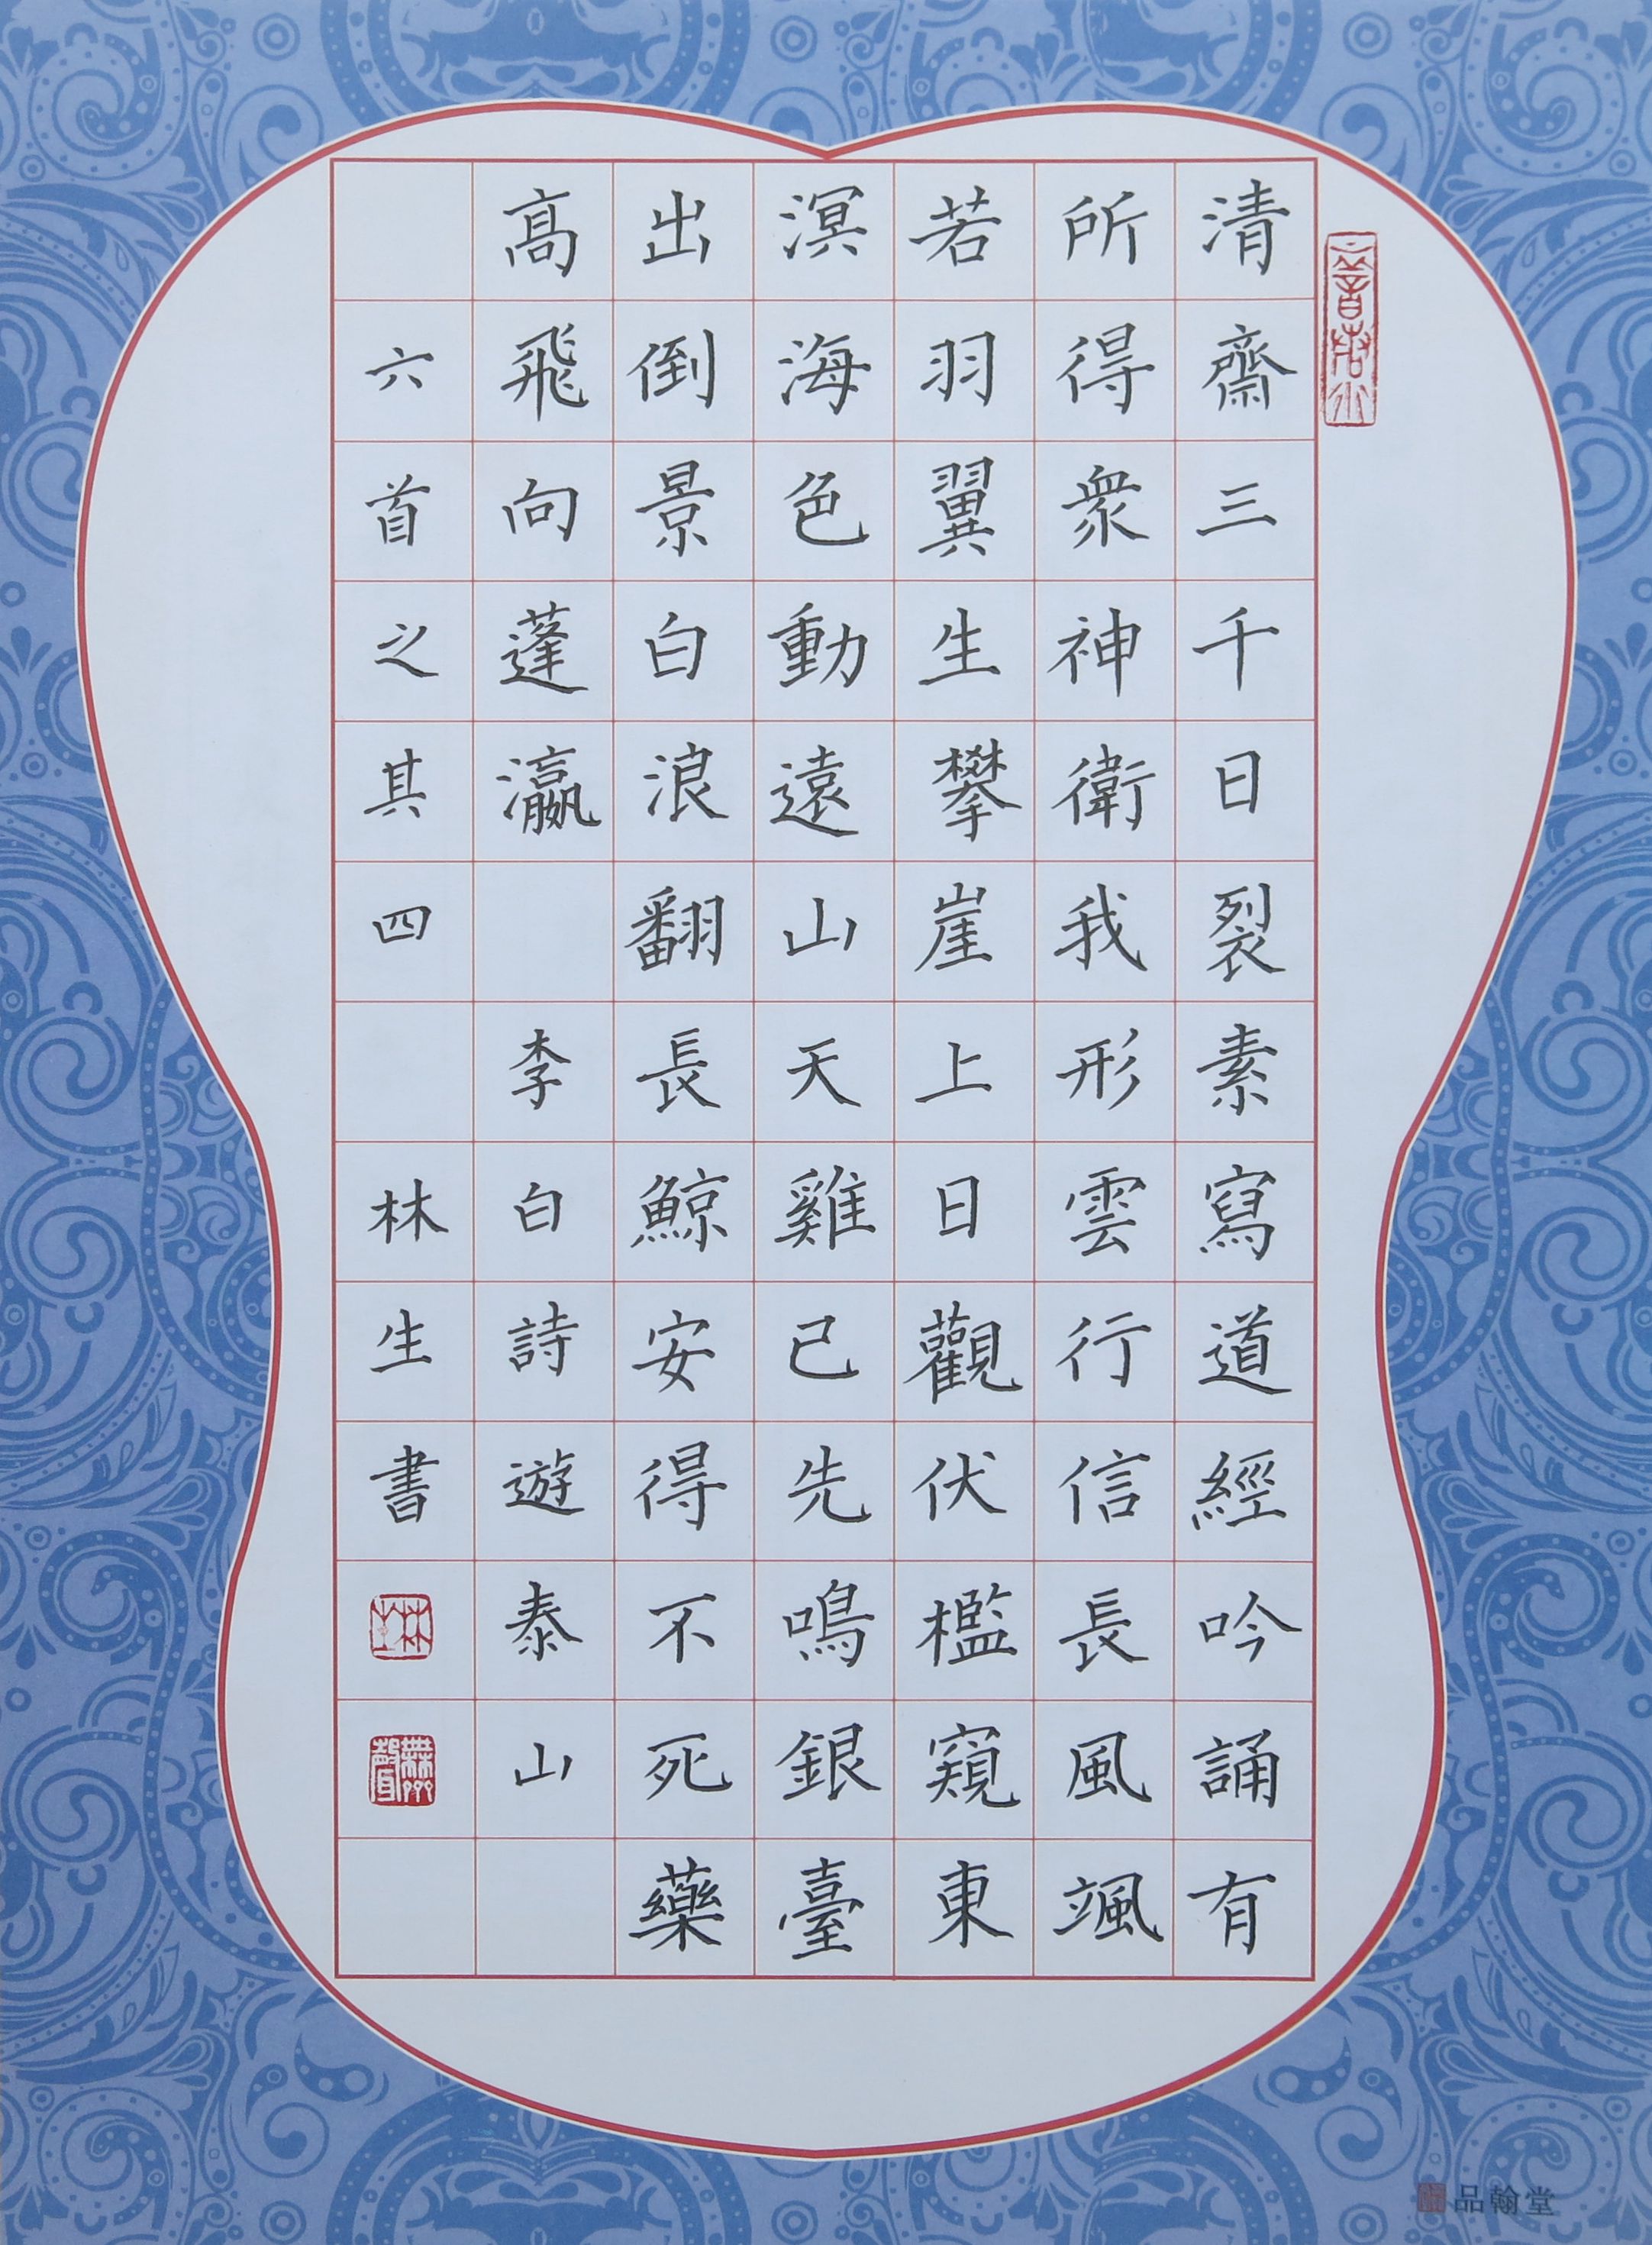 清齋三千日裂素寫道經吟誦有
所得衆神衛我形雲行信長風颯
若羽翼生攀崖上日觀伏檻窺東
溟海色動遠山天雞已先鳴銀臺
出倒景白浪翻長鯨安得不死藥
高飛向蓬瀛 李白詩遊泰山
六首之其四 林生書
品翰堂